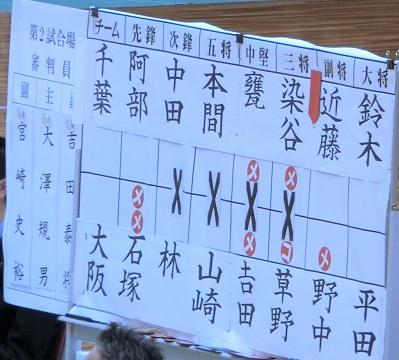 第2試合場
審判員
副 宮崎史裕
主 大澤規男
吉田泰将
チーム 先鋒 次鋒 五将 中堅 三将 副将 大将
千葉 阿部 中田 本間 甕 染谷 近藤 鈴木
メ メ
メメ メ コ メ
大阪 石塚 林 山崎 吉田 草野 野中 平田